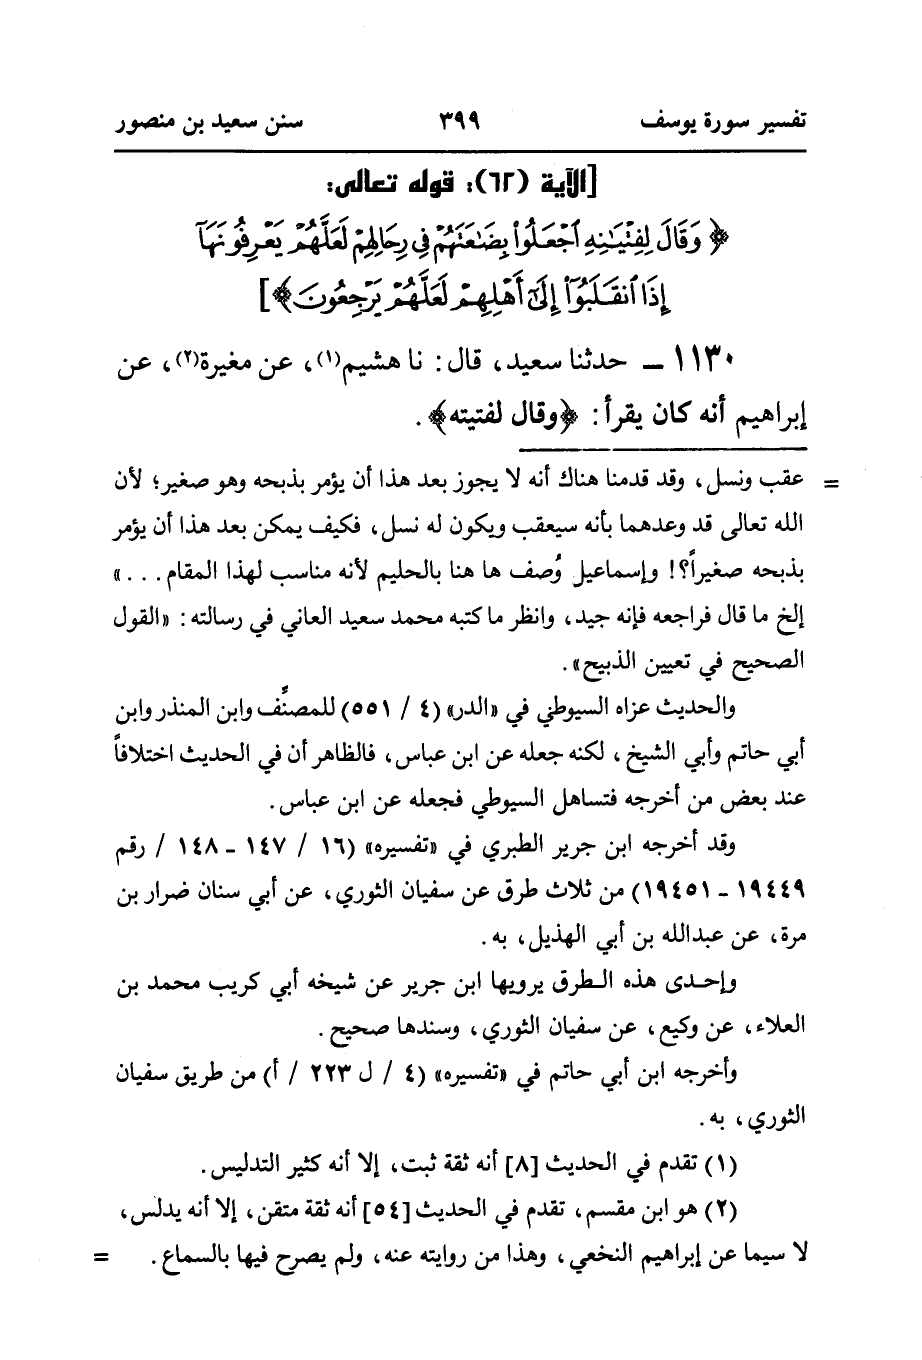 تفسير سورة يوسف ٣٩٩ سنن سعيد بن منصور
[الآية (٦٢): قوله تعالى:
﴿ وَقَالَ لِفِتْيَٰنِهِ ٱجْعَلُوا۟ بِضَٰعَتَهُمْ فِى رِحَالِهِمْ لَعَلَّهُمْ يَعْرِفُونَهَآ
إِذَا ٱنقَلَبُوٓا۟ إِلَىٰٓ أَهْلِهِمْ لَعَلَّهُمْ يَرْجِعُونَ﴾]
١١٣٠ ـ حدثنا سعيد، قال: نا هشيم(١)، عن مغيرة(٢)، عن
إبراهيم أنه كان يقرأ: ﴿وقال لفتيته﴾.
= عقب ونسل، وقد قدمنا هناك أنه لا يجوز بعد هذا أن يؤمر بذبحه وهو صغير؛ لأن
الله تعالى قد وعدهما بأنه سيعقب ويكون له نسل، فكيف يمكن بعد هذا أن يؤمر
بذبحه صغيراً؟! وإسماعيل وُصف ها هنا بالحليم لأنه مناسب لهذا المقام...»
إلخ ما قال فراجعه فإنه جيد، وانظر ما كتبه محمد سعيد العاني في رسالته: «القول
الصحيح في تعيين الذبيح».
والحديث عزاه السيوطي في «الدر» (٤ / ٥٥١) للمصنِّف وابن المنذر وابن
أبي حاتم وأبي الشيخ، لكنه جعله عن ابن عباس، فالظاهر أن في الحديث اختلافاً
عند بعض من أخرجه فتساهل السيوطي فجعله عن ابن عباس.
وقد أخرجه ابن جرير الطبري في «تفسيره» (١٦ / ١٤٧ ـ ١٤٨ / رقم
١٩٤٤٩ ـ ١٩٤٥١) من ثلاث طرق عن سفيان الثوري، عن أبي سنان ضرار بن
مرة، عن عبدالله بن أبي الهذيل، به.
وإحدى هذه الطرق يرويها ابن جرير عن شيخه أبي كريب محمد بن
العلاء، عن وكيع، عن سفيان الثوري، وسندها صحيح.
وأخرجه ابن أبي حاتم في «تفسيره» (٤ / ل ٢٢٣ / أ) من طريق سفيان
الثوري، به.
(١) تقدم في الحديث [٨] أنه ثقة ثبت، إلا أنه كثير التدليس.
(٢) هو ابن مقسم، تقدم في الحديث [٥٤] أنه ثقة متقن، إلا أنه يدلس،
لا سيما عن إبراهيم النخعي، وهذا من روايته عنه، ولم يصرح فيها بالسماع. =